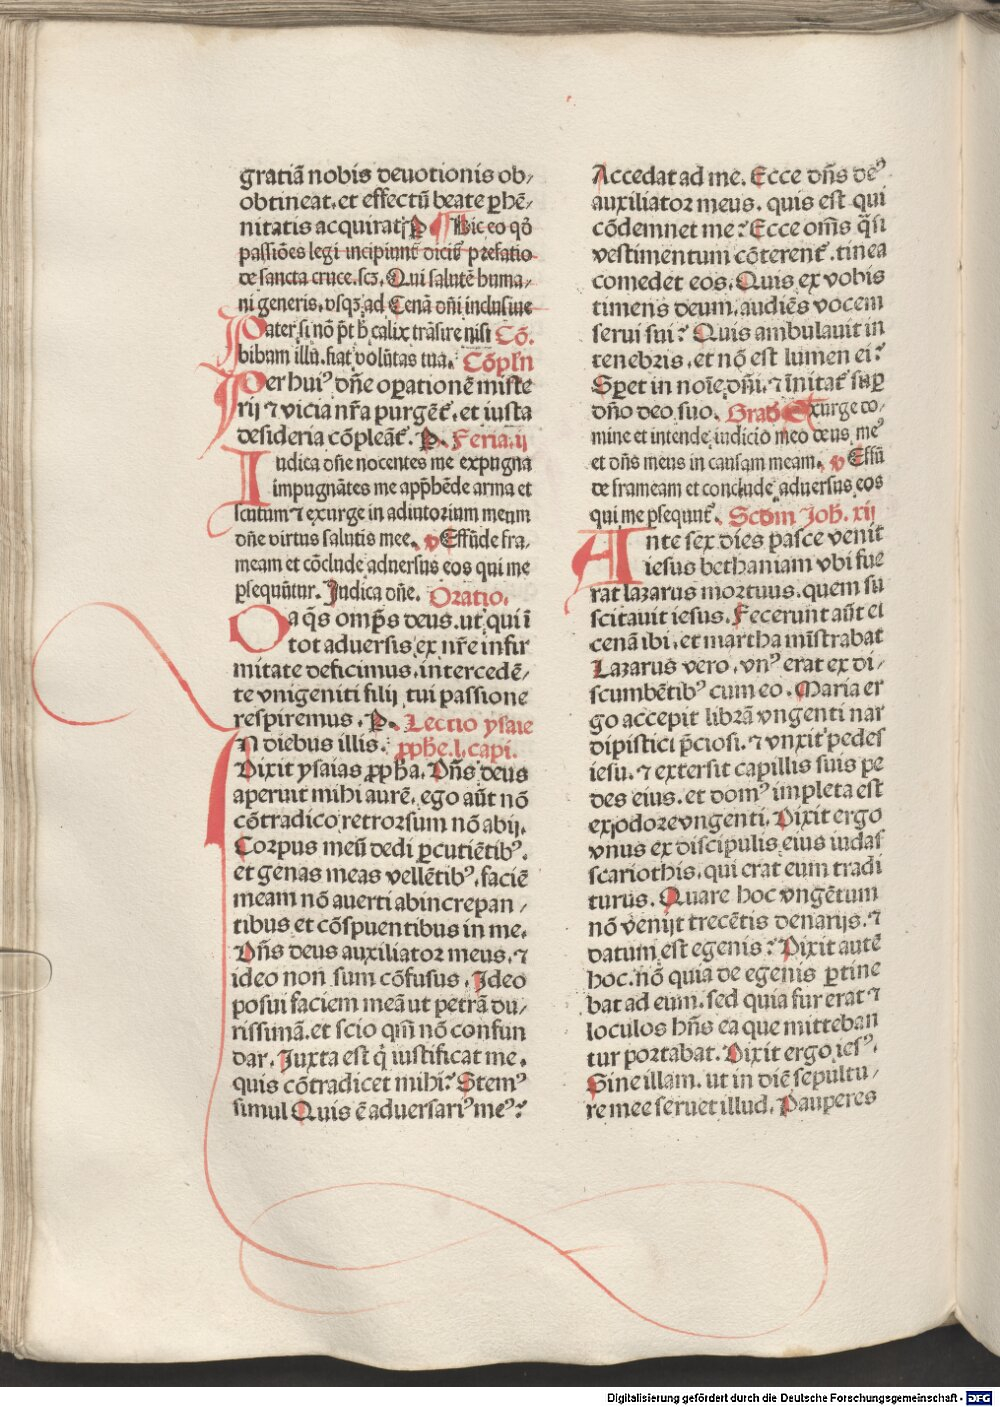 gratiā nobis deuotionis ob/
obtineat, et effectū beate phē/
nitatis acquirat. P. Hic eo qd
passiões legi incipiunt dicit̄ prefatio
de sancta cruce. scz. Qui salutē huma/
ni generis, vsqz ad Cenā dñi inclusiue
Pater, si nō pt̄ h̄ calix trāsire nisi Cō.
bibam illū, fiat volūtas tua. Cōpln
Per huiꝰ dñe operationē miste
rij ⁊ vicia nr̄a purgēt, et iusta
desideria cōpleāt. P. Feria. ij
Iudica dñe nocentes me expugna
impugnātes me apphēde arma et
scutum ⁊ exurge in adiutorium meum
dñe virtus salutis mee. v Effūde fra/
meam et cōclude aduersus eos qui me
persequūtur. Judica dñe. Oratio.
Da q̄s omp̄s deus, ut, qui ī
tot aduersis, ex nr̄e infir
mitate deficimus, intercedē/
te vnigeniti filij tui passione
respiremus. P. Lectio ysaie
In diebus illis. prophe. l. capi.
Dixit ysaias ꝓph̄a. Dñs deus
aperuit mihi aurē, ego aūt nō
cōtradico, retrorsum nō abij.
Corpus meū dedi ꝑcutiētibꝰ.
et genas meas vellētibꝰ, faciē
meam nō auerti ab increpan/
tibus et cōspuentibus in me.
Dñs deus auxiliator meus, ⁊
ideo non sum cōfusus. Ideo
posui faciem meā ut petrā du/
rissimā, et scio qm̄ nō confun
dar. Juxta est q̄ iustificat me,
quis cōtradicet mihi? Stemꝰ
simul Quis ē aduersariꝰ meꝰ?
Accedat ad me. Ecce dñs deꝰ
auxiliator meus, quis est qui
cōdemnet me? Ecce om̄s q̄si
vestimentum cōterent̄, tinea
comedet eos. Quis ex vobis
timens deum, audiēs vocem
serui sui? Quis ambulauit in
tenebris, et nō est lumen ei?
Speret in noīe dñi, ⁊ īnitat̄ suꝑ
dño deo suo. Grad̄ Exurge do/
mine et intende iudicio meo deus meꝰ
et dñs meus in causam meam. v Effū
de frameam et conclude aduersus eos
qui me ꝑsequunt̄. Scdm Joh. xij
Ante sex dies pasce venit
iesus bethaniam vbi fue
rat lazarus mortuus, quem su
scitauit iesus. Fecerunt aūt ei
cenā ibi, et martha mīstrabat
Lazarus vero, vnꝰ erat ex di/
scumbētibꝰ cum eo. Maria er
go accepit librā vngenti nar
di pistici p̄ciosi, ⁊ vnxit pedes
iesu, ⁊ extersit capillis suis pe
des eius, et domꝰ impleta est
ex odore vngenti. Dixit ergo
vnus ex discipulis eius iudas
scariothis, qui erat eum tradi
turus. Quare hoc vngētum
nō venijt trecētis denarijs, ⁊
datum est egenis? Dixit autē
hoc, nō quia de egenis ꝑtine
bat ad eum, sed quia fur erat ⁊
loculos hn̄s ea que mitteban
tur portabat. Dixit ergo iesꝰ.
Sine illam, ut in diē sepultu/
re mee seruet illud. Pauperes
Digitalisierung gefördert durch die Deutsche Forschungsgemeinschaft - DFG